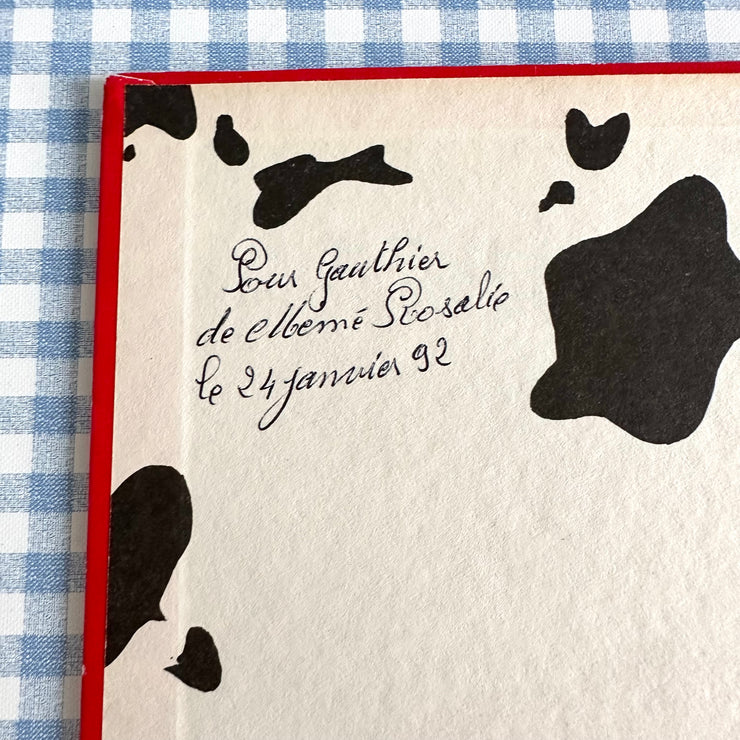 Pour Gauthier
de Memé Rosalie
le 24 janvier 92